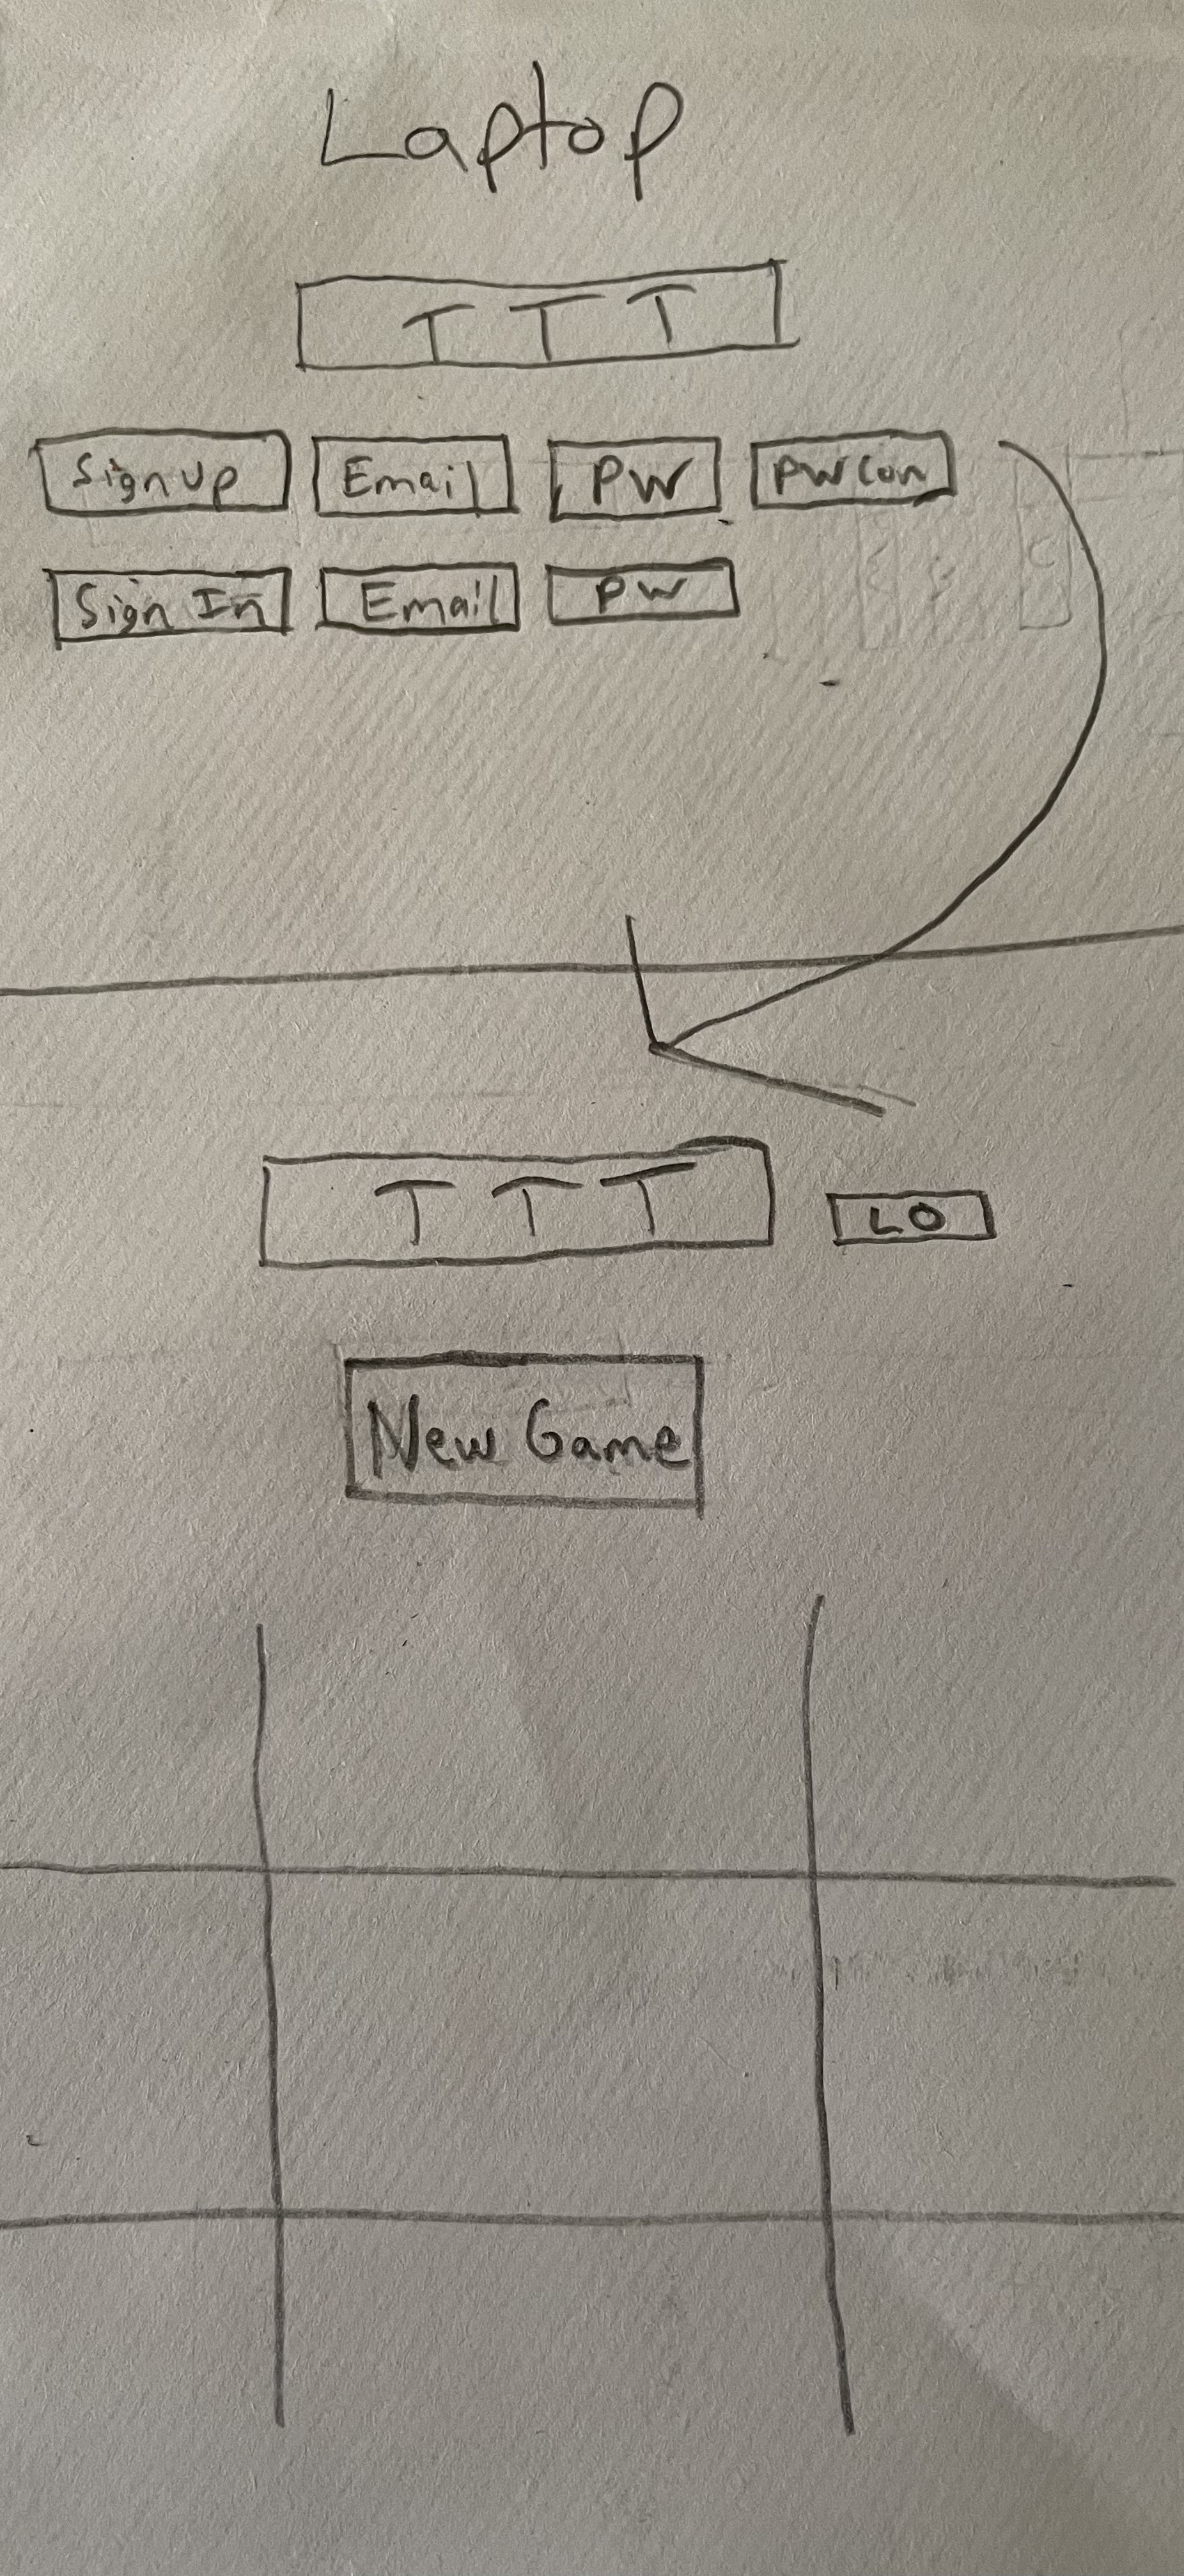 Laptop
T T T
Sign Up Email PW PW Con
Sign In Email PW
T T T LO
New Game